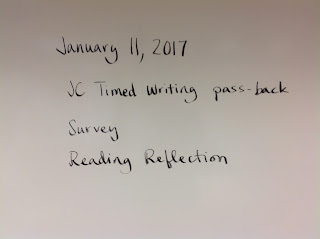 January 11, 2017
JC Timed Writing pass-back
Survey
Reading Reflection